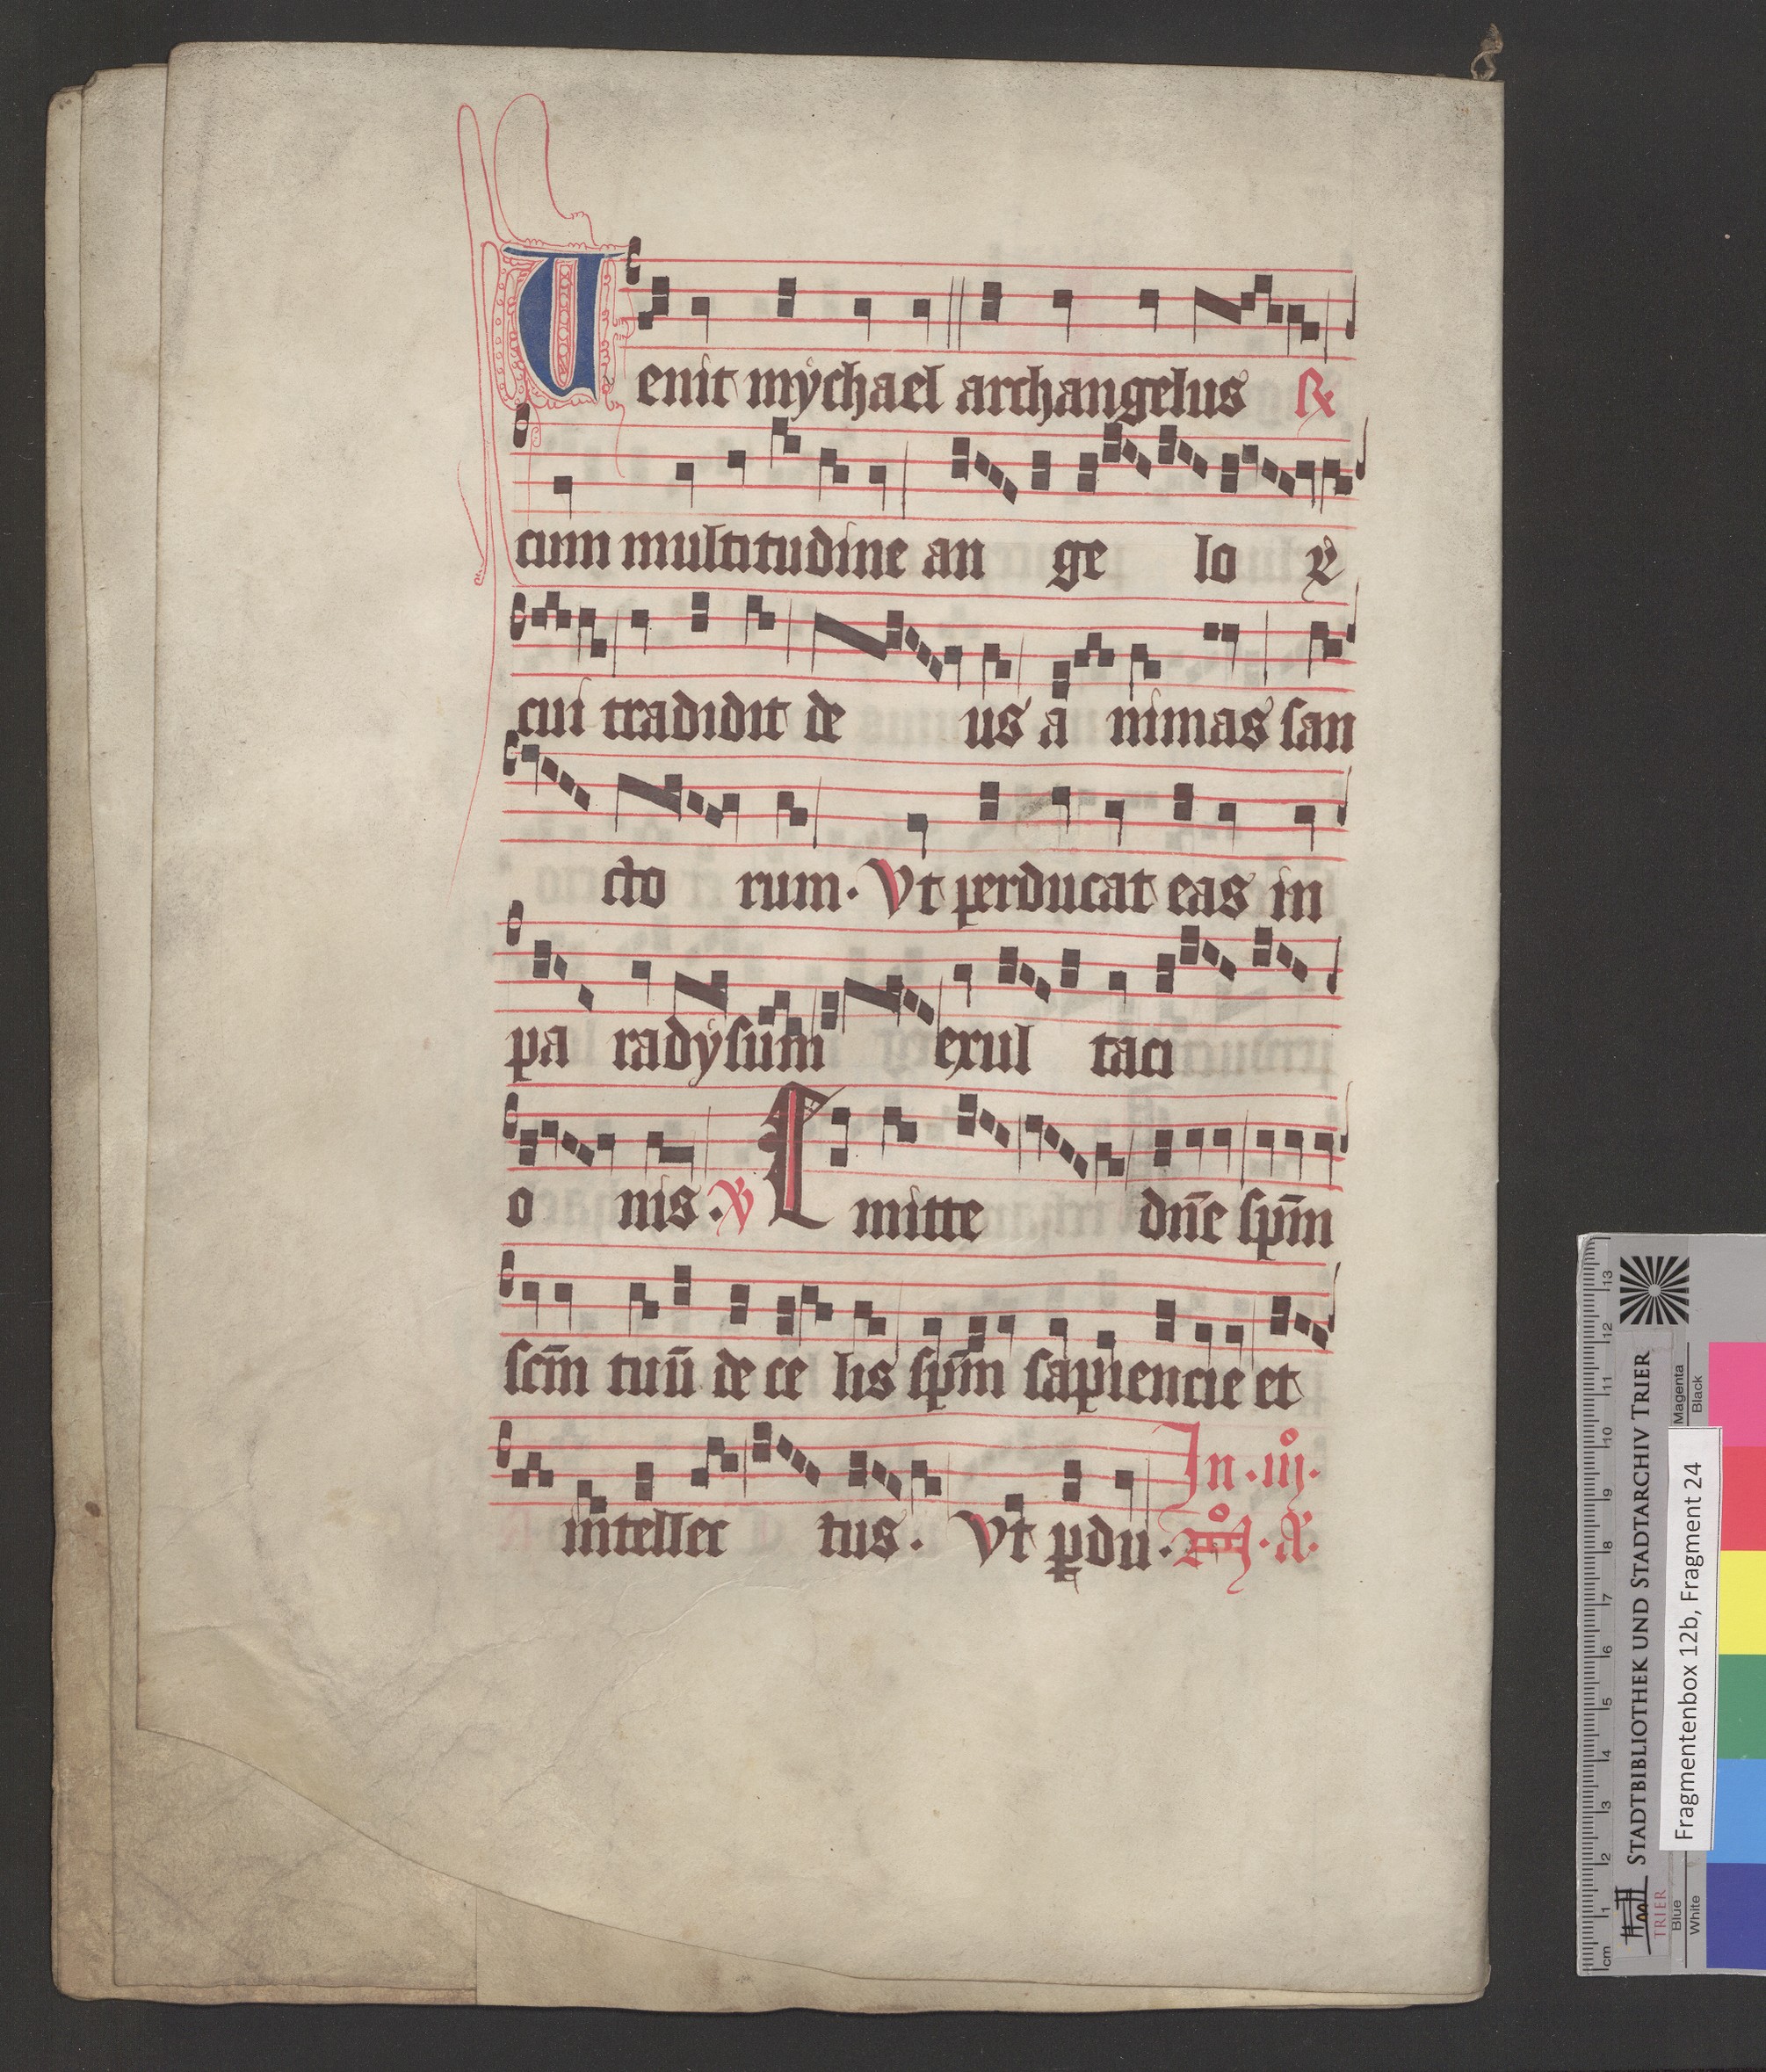 Venit mychael archangelus ℟
cum multitudine an ge lo ꝝ
cui tradidit de us a nimas san
cto rum. Vt perducat eas in
pa radysum exul taci
o nis. ℣ Emitte dn̄e sp̄m
scm̄ tuū de ce lis sp̄m sapiencie et
In .iijͦ.
intellec tus. Vt ꝑdu.
STADTBIBLIOTHEK UND STADTARCHIV TRIER
TRIER
Fragmentenbox 12b, Fragment 24
cm 1 2 3 4 5 6 7 8 9 10 11 12 13
Blue
White
Magenta
Black